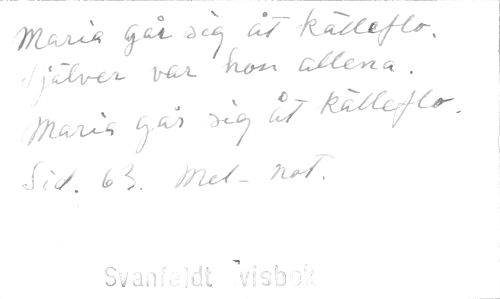 Maria går sig åt källeflo.
Själver var hon allena.
Maria går sig åt källeflo.
Sid. 63. Mel-not.
Svanfeldt visbok